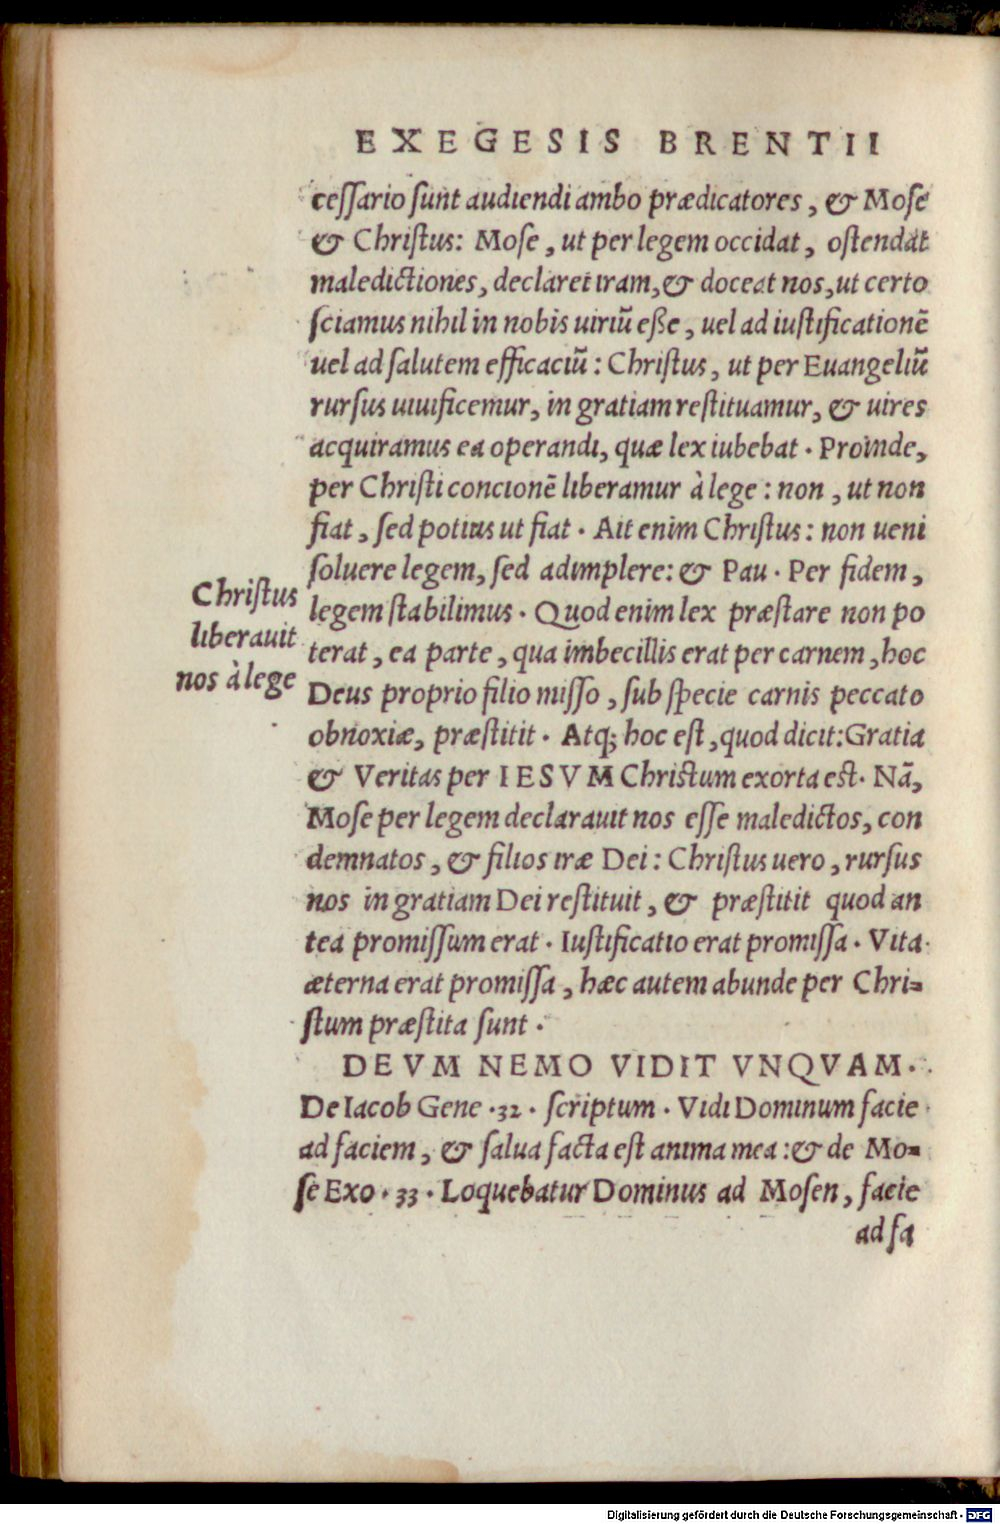 EXEGESIS BRENTII
ceſſario ſunt audiendi ambo prædicatores, & Moſe
& Chriſtus: Moſe, ut per legem occidat, oſtendat
maledictiones, declaret iram, & doceat nos, ut certo
ſciamus nihil in nobis uiriũ eße, uel ad iuſtificationẽ
uel ad ſalutem efficaciũ: Chriſtus, ut per Euangeliũ
rurſus uiuificemur, in gratiam reſtituamur, & uires
acquiramus ea operandi, quæ lex iubebat. Proinde,
per Chriſti concionẽ liberamur à lege: non, ut non
fiat, ſed potius ut fiat. Ait enim Chriſtus: non ueni
ſoluere legem, ſed adimplere: & Pau. Per fidem,
Chriſtus
liberauit
nos à lege
legem ſtabilimus. Quod enim lex præſtare non po
terat, ea parte, qua imbecillis erat per carnem, hoc
Deus proprio filio miſſo, ſub ſpecie carnis peccato
obnoxiæ, præſtitit. Atq; hoc eſt, quod dicit: Gratia
& Veritas per IESVM Chriſtum exorta eſt. Nã,
Moſe per legem declarauit nos eſſe maledictos, con
demnatos, & filios iræ Dei: Chriſtus uero, rurſus
nos in gratiam Dei reſtituit, & præſtitit quod an
tea promiſſum erat. Iuſtificatio erat promiſſa. Vita
æterna erat promiſſa, hæc autem abunde per Chri=
ſtum præſtita ſunt.
DEVM NEMO VIDIT VNQVAM.
De Iacob Gene .32. ſcriptum. Vidi Dominum facie
ad faciem, & ſalua facta eſt anima mea: & de Mo=
ſe Exo. 33. Loquebatur Dominus ad Moſen, facie
ad fa
Digitalisierung gefördert durch die Deutsche Forschungsgemeinschaft - DFG